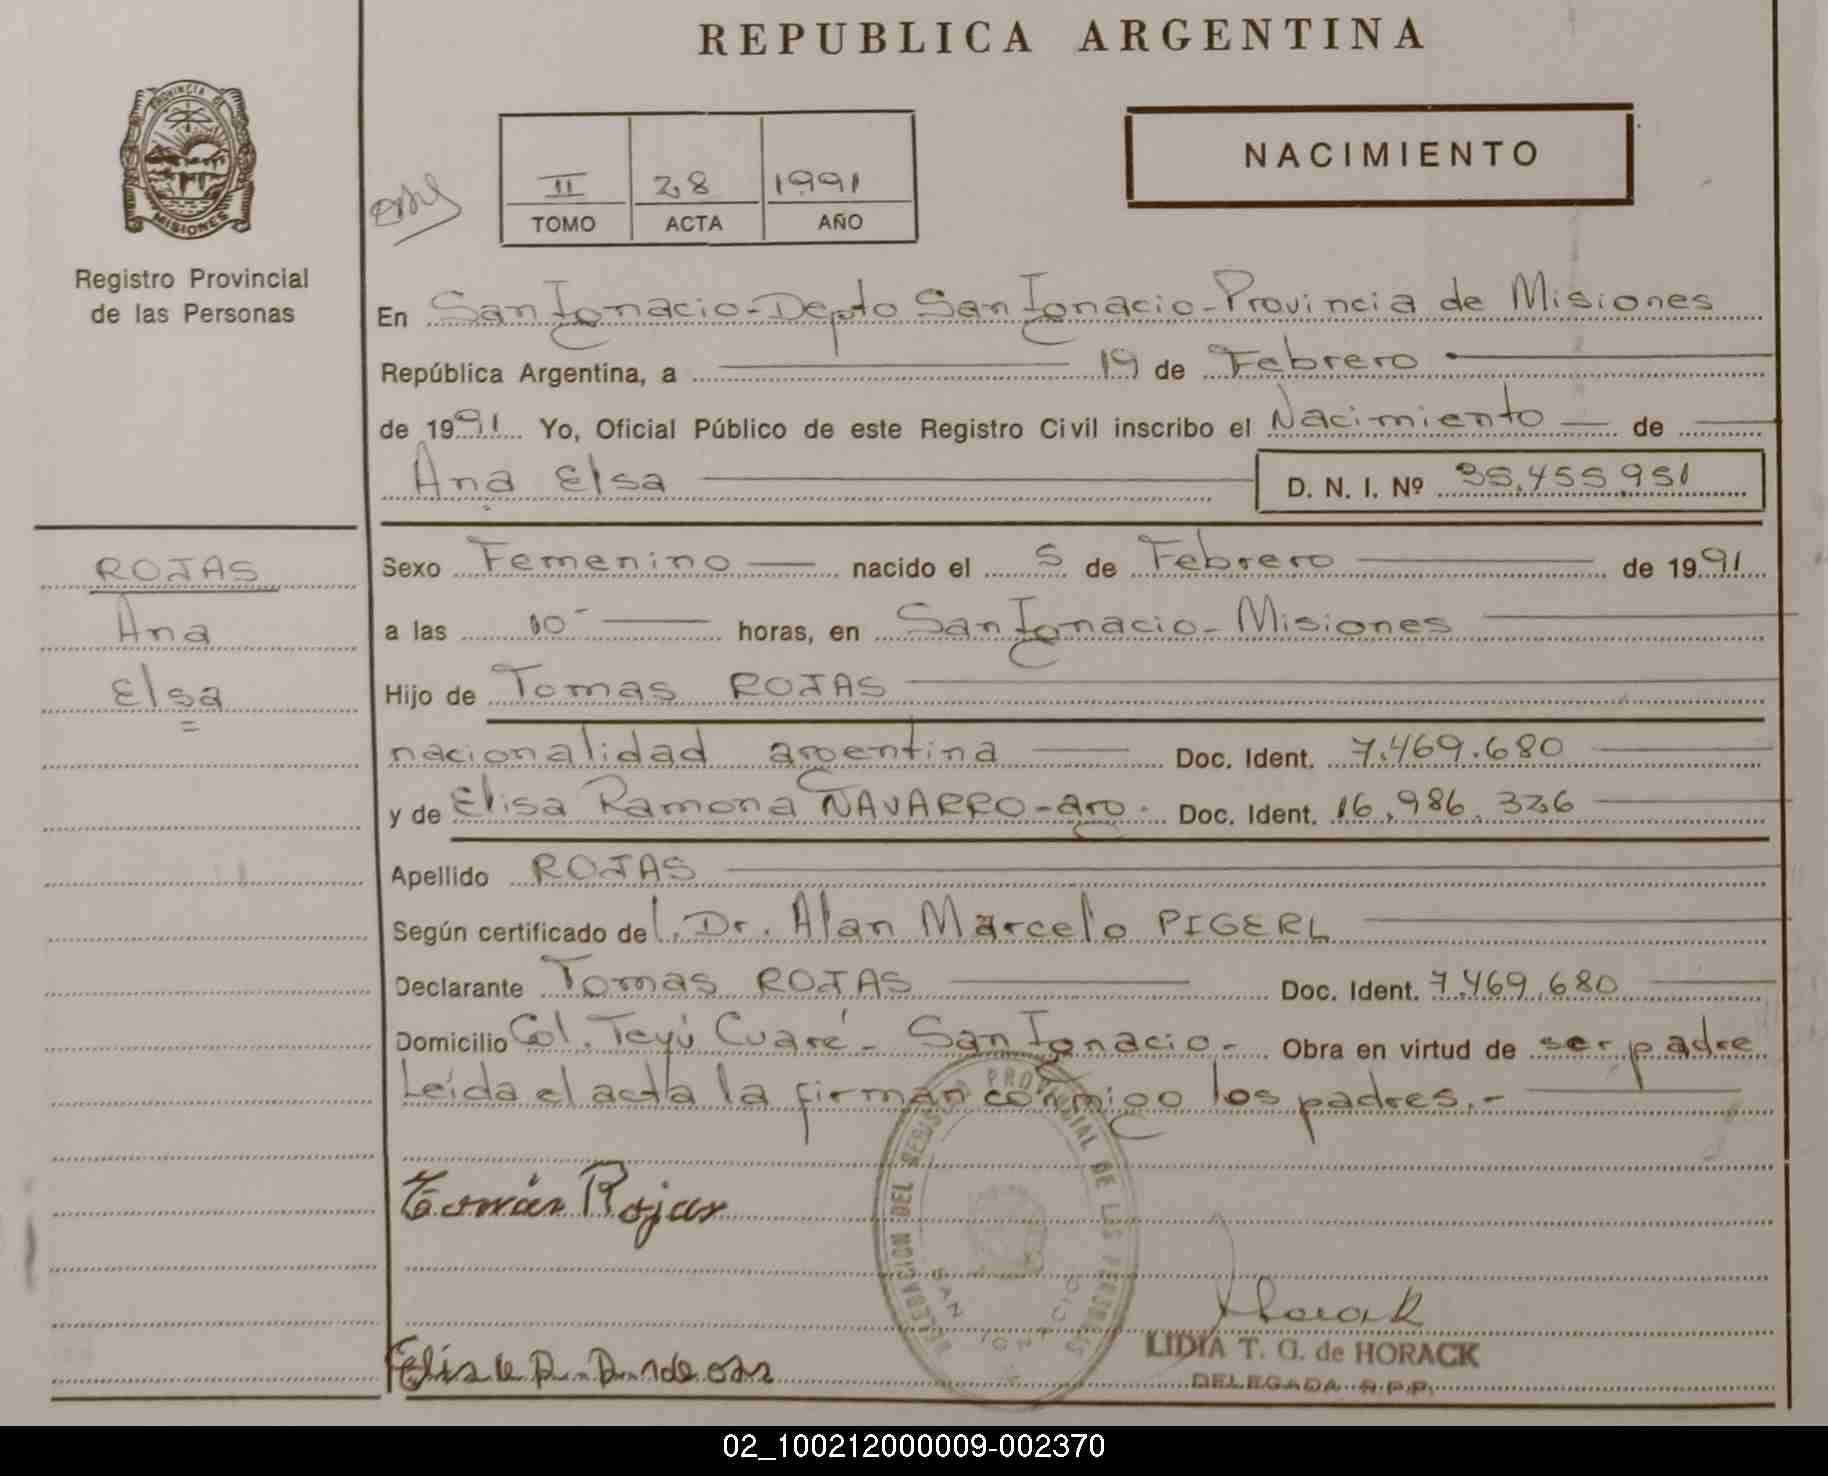 REPUBLICA ARGENTINA
PROVINCIA DE
MISIONES
Registro Provincial
de las Personas
II 28 1991
TOMO ACTA AÑO
NACIMIENTO
En San Ignacio - Depto San Ignacio - Provincia de Misiones
República Argentina, a 19 de Febrero
de 1991. Yo, Oficial Público de este Registro Civil inscribo el Nacimiento de
Ana Elsa D. N. I. Nº 35.455.951
ROJAS
Ana
Elsa
Sexo Femenino nacido el 5 de Febrero de 1991
a las 10 horas, en San Ignacio - Misiones
Hijo de Tomas ROJAS
nacionalidad argentina Doc. Ident. 7.469.680
y de Elisa Ramona NAVARRO - arg. Doc. Ident. 16.986.326
Apellido ROJAS
Según certificado del. Dr. Alan Marcelo PIGERL
Declarante Tomas ROJAS Doc. Ident. 7.469.680
Domicilio Col. Teyú Cuaré - San Ignacio.- Obra en virtud de ser padre
Leída el acta la firman conmigo los padres.-
Tomás Rojas
DELEGACION DEL REGISTRO PROVINCIAL DE LAS PERSONAS
SAN IGNACIO
Horack
LIDIA T. G. de HORACK
DELEGADA R.P.P.
02_100212000009-002370